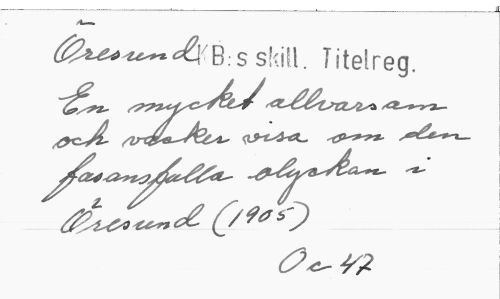 Öresund KB:s skill. Titelreg.
En mycket allvarsam
och vacker visa om den
fasansfulla olyckan i
Öresund (1905)
Oc 47